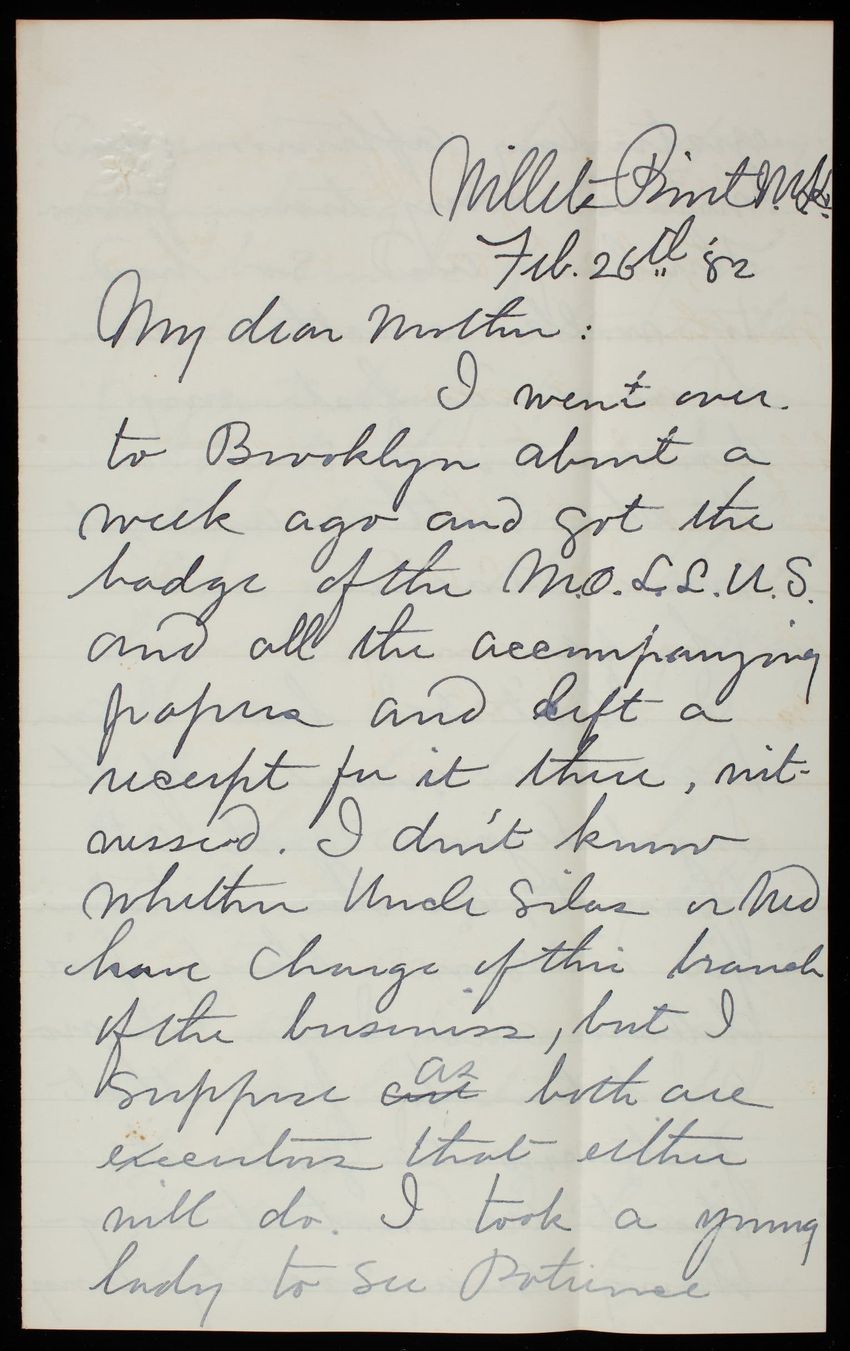 Willets Point N.Y.H.
Feb. 26th '82
My dear Mother:
I went over
to Brooklyn about a
week ago and got the
badge of the M.O.L.L.U.S.
and all the accompanying
papers and left a
receipt for it there, wit-
nessed. I don't know
whether Uncle Silas or Ned
have charge of this branch
of the business, but I
suppose as both are
executors that either
will do. I took a young
lady to see Patience